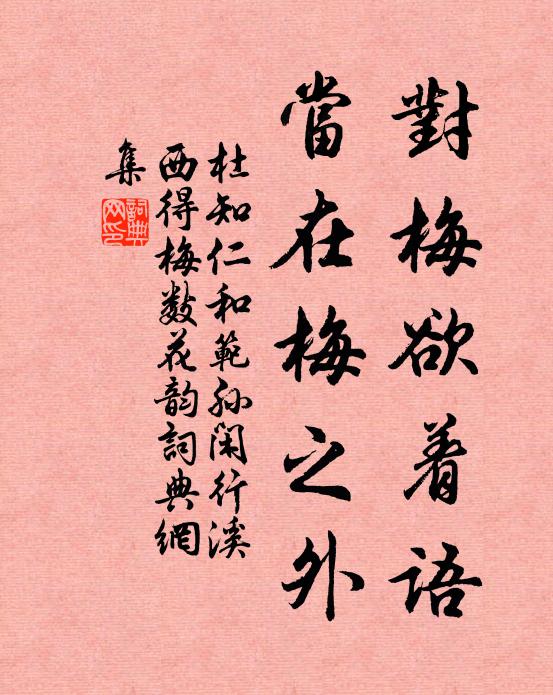 對梅欲着語
當在梅之外
杜知仁和範孫閑行溪
西得梅數花韵詞典網
集
詞典網印